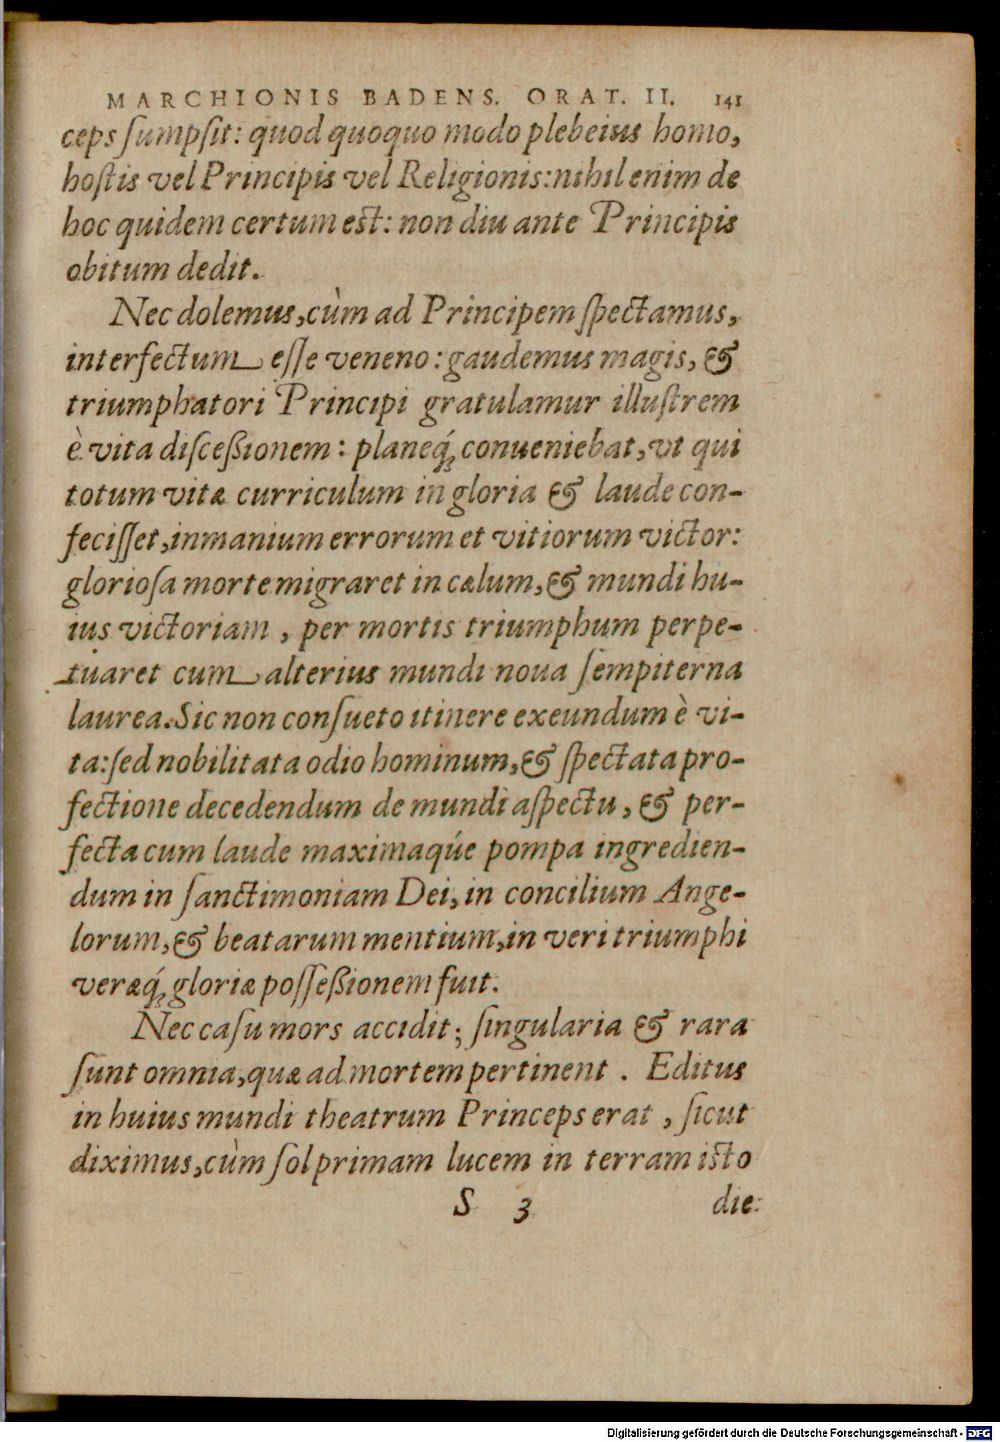 MARCHIONIS BADENS. ORAT. II. 141
ceps ſumpſit: quod quoquo modo plebeius homo,
hoſtis vel Principis vel Religionis: nihil enim de
hoc quidem certum est: non diu ante Principis
obitum dedit.
Nec dolemus, cùm ad Principem ſpectamus,
interfectum eſſe veneno: gaudemus magis, &
triumphatori Principi gratulamur illuſtrem
è vita diſceßionem: planeq́; conueniebat, vt qui
totum vitæ curriculum in gloria & laude con-
feciſſet, inmanium errorum et vitiorum victor:
glorioſa morte migraret in cælum, & mundi hu-
ius victoriam, per mortis triumphum perpe-
tuaret cum alterius mundi noua ſempiterna
laurea. Sic non conſueto itinere exeundum è vi-
ta: ſed nobilitata odio hominum, & ſpectata pro-
fectione decedendum de mundi aſpectu, & per-
fecta cum laude maximaq́ue pompa ingredien-
dum in ſanctimoniam Dei, in concilium Ange-
lorum, & beatarum mentium, in veri triumphi
veræq́; gloriæ poſſeßionem fuit.
Nec caſu mors accidit; ſingularia & rara
ſunt omnia, quæ ad mortem pertinent. Editus
in huius mundi theatrum Princeps erat, ſicut
diximus, cùm ſol primam lucem in terram isto
S 3 die
Digitalisierung gefördert durch die Deutsche Forschungsgemeinschaft - DFG